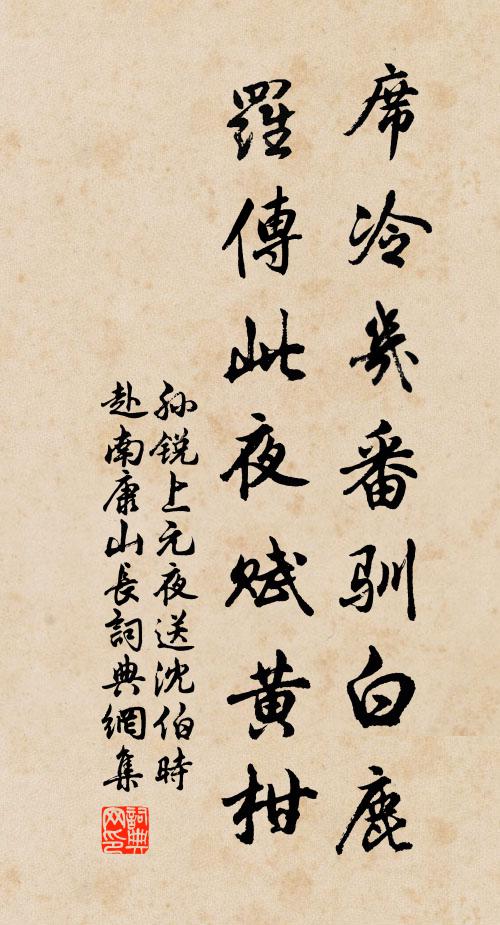 席冷幾番馴白鹿
羅傳此夜賦黃柑
孙锐上元夜送沈伯時
赴南康山長詞典網集
詞典网印